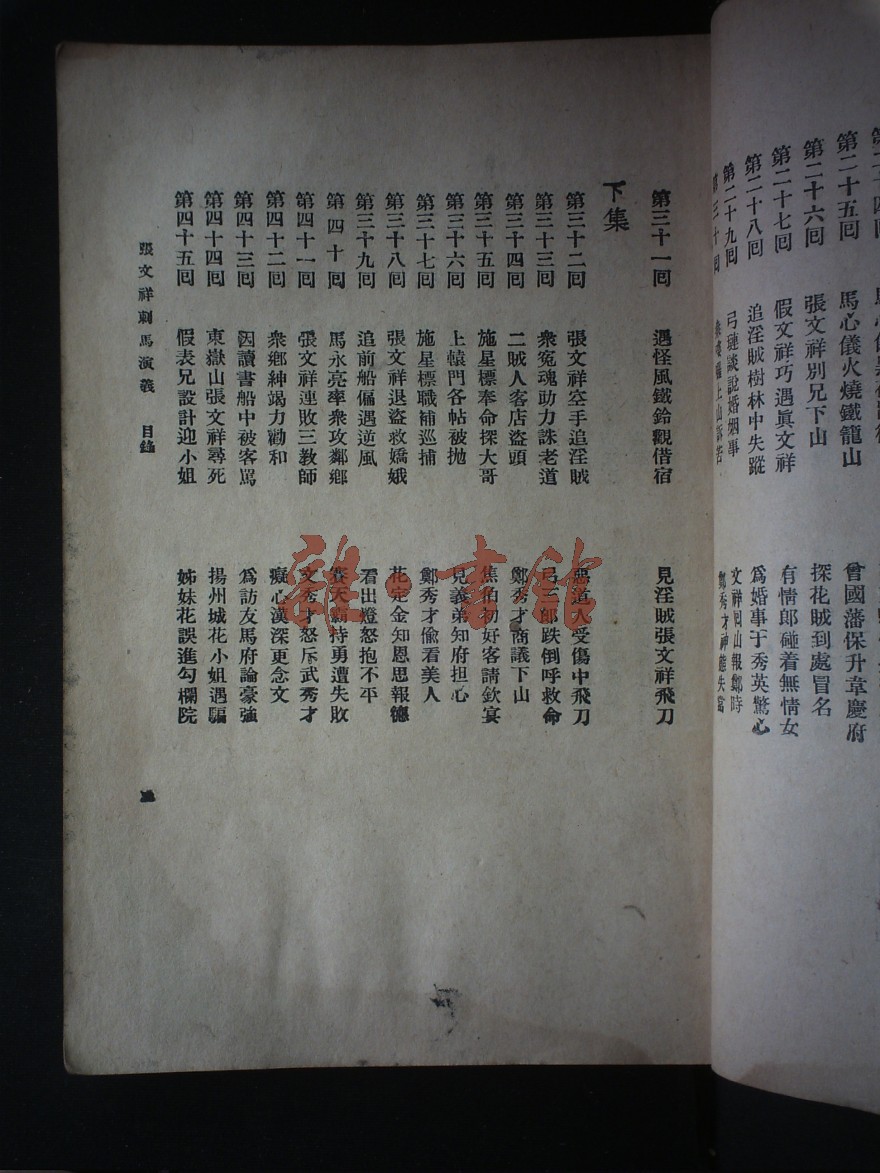 第二十五回 馬心儀火燒鐵籠山 曾國藩保升韋慶府
第二十六回 張文祥別兄下山 探花賊到處冒名
第二十七回 假文祥巧遇眞文祥 有情郎碰着無情女
第二十八回 追淫賊樹林中失蹤 爲婚事于秀英驚心
第二十九回 弓璉談說婚姻事 文祥回山報鄭時
第三十回 上山訴苦 鄭秀才神態失當
第三十一回 遇怪風鐵鈴觀借宿 見淫賊張文祥飛刀
下集
第三十二回 張文祥空手追淫賊 惡道人受傷中飛刀
第三十三回 衆冤魂助力誅老道 弓三郎跌倒呼救命
第三十四回 二賊人客店盜頭 鄭秀才商議下山
第三十五回 施星標奉命探大哥 焦伯初好客請飲宴
第三十六回 上轅門各帖被拋 見義弟知府担心
第三十七回 施星標職補巡捕 鄭秀才偸看美人
第三十八回 張文祥退盜救嬌娥 花定金知恩思報德
第三十九回 追前船偏遇逆風 看出燈怒抱不平
第四十回 馬永亮率衆攻鄰鄉 賽天霸恃勇遭失敗
第四十一回 張文祥連敗三敎師 文秀才怒斥武秀才
第四十二回 衆鄉紳竭力勸和 癡心漢深更念文
第四十三回 因讀書船中被客罵 爲訪友馬府論豪強
第四十四回 東嶽山張文祥尋死 揚州城花小姐遇騙
第四十五回 假表兄設計迎小姐 姊妹花誤進勾欄院
張文祥刺馬演義 目錄
雜·書館